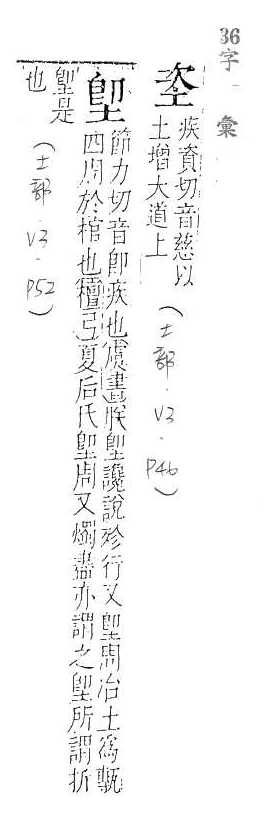 36
字彙
垐
疾資切音慈以
土增大道上
(土部.V3.P46)
堲
節力切音卽疾也虞書朕堲讒說殄行又堲周冶土爲甎
四周於棺也檀弓夏后氏堲周又燭盡亦謂之堲所謂折
堲是
也
(土部.V3.P52)